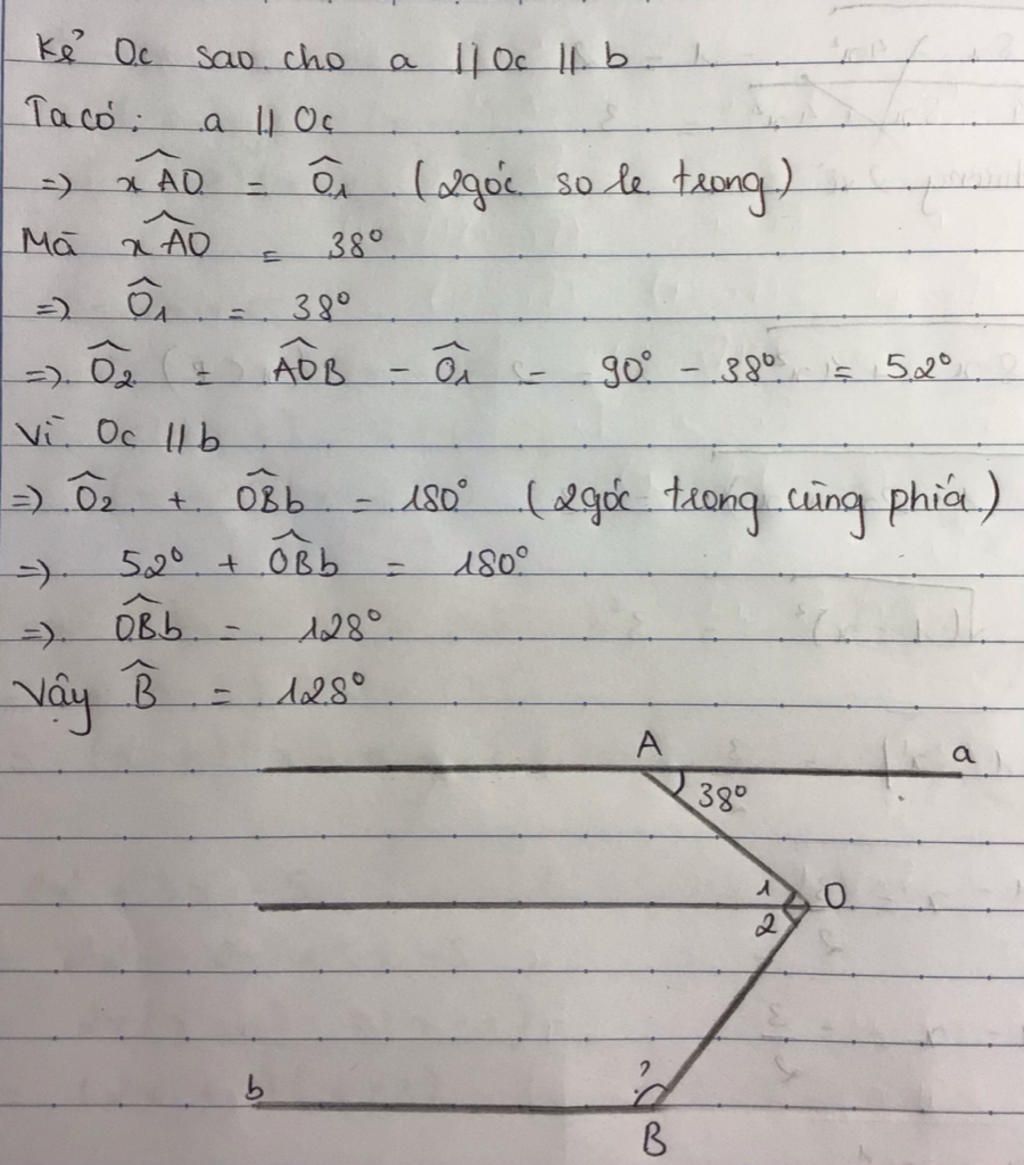 Kẻ Oc sao cho a // Oc // b
Ta có: a // Oc
=> x̂AO = Ô₁ (2 góc so le trong)
Mà x̂AO = 38°
=> Ô₁ = 38°
=> Ô₂ = ÂOB - Ô₁ = 90° - 38° = 52°
Vì Oc // b
=> Ô₂ + ÔBb = 180° (2 góc trong cùng phía)
=> 52° + ÔBb = 180°
=> ÔBb = 128°
Vậy B̂ = 128°
A a
38°
1 O
2
b ?
B